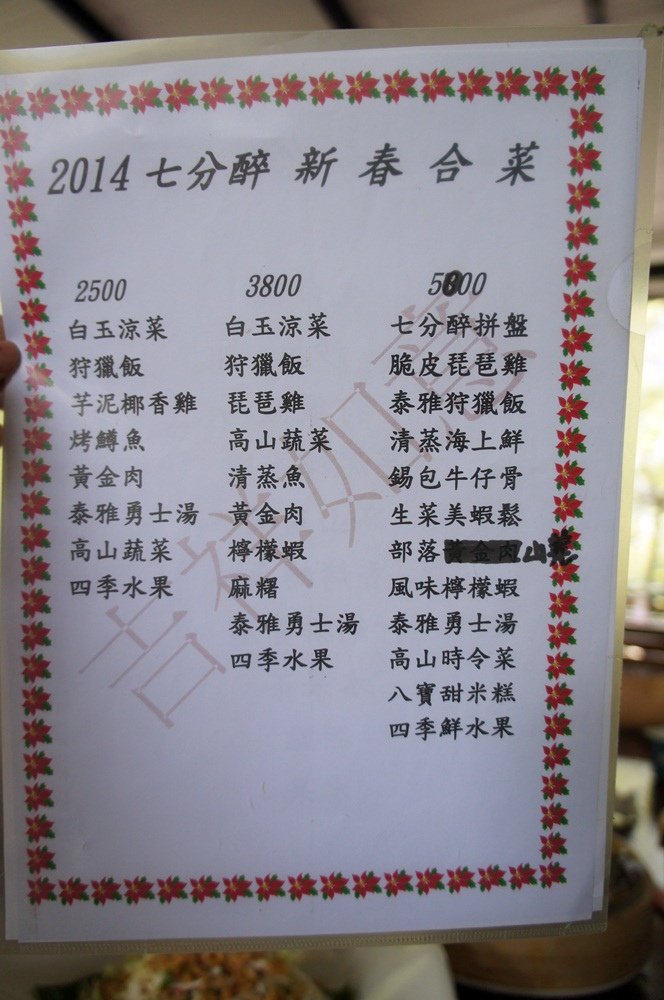 2014 七分醉 新 春 合 菜
2500
白玉涼菜
狩獵飯
芋泥椰香雞
烤鱒魚
黃金肉
泰雅勇士湯
高山蔬菜
四季水果
3800
白玉涼菜
狩獵飯
琵琶雞
高山蔬菜
清蒸魚
黃金肉
檸檬蝦
麻糬
泰雅勇士湯
四季水果
5000
七分醉拼盤
脆皮琵琶雞
泰雅狩獵飯
清蒸海上鮮
錫包牛仔骨
生菜美蝦鬆
部落黃金肉山
風味檸檬蝦
泰雅勇士湯
高山時令菜
八寶甜米糕
四季鮮水果
吉祥如意